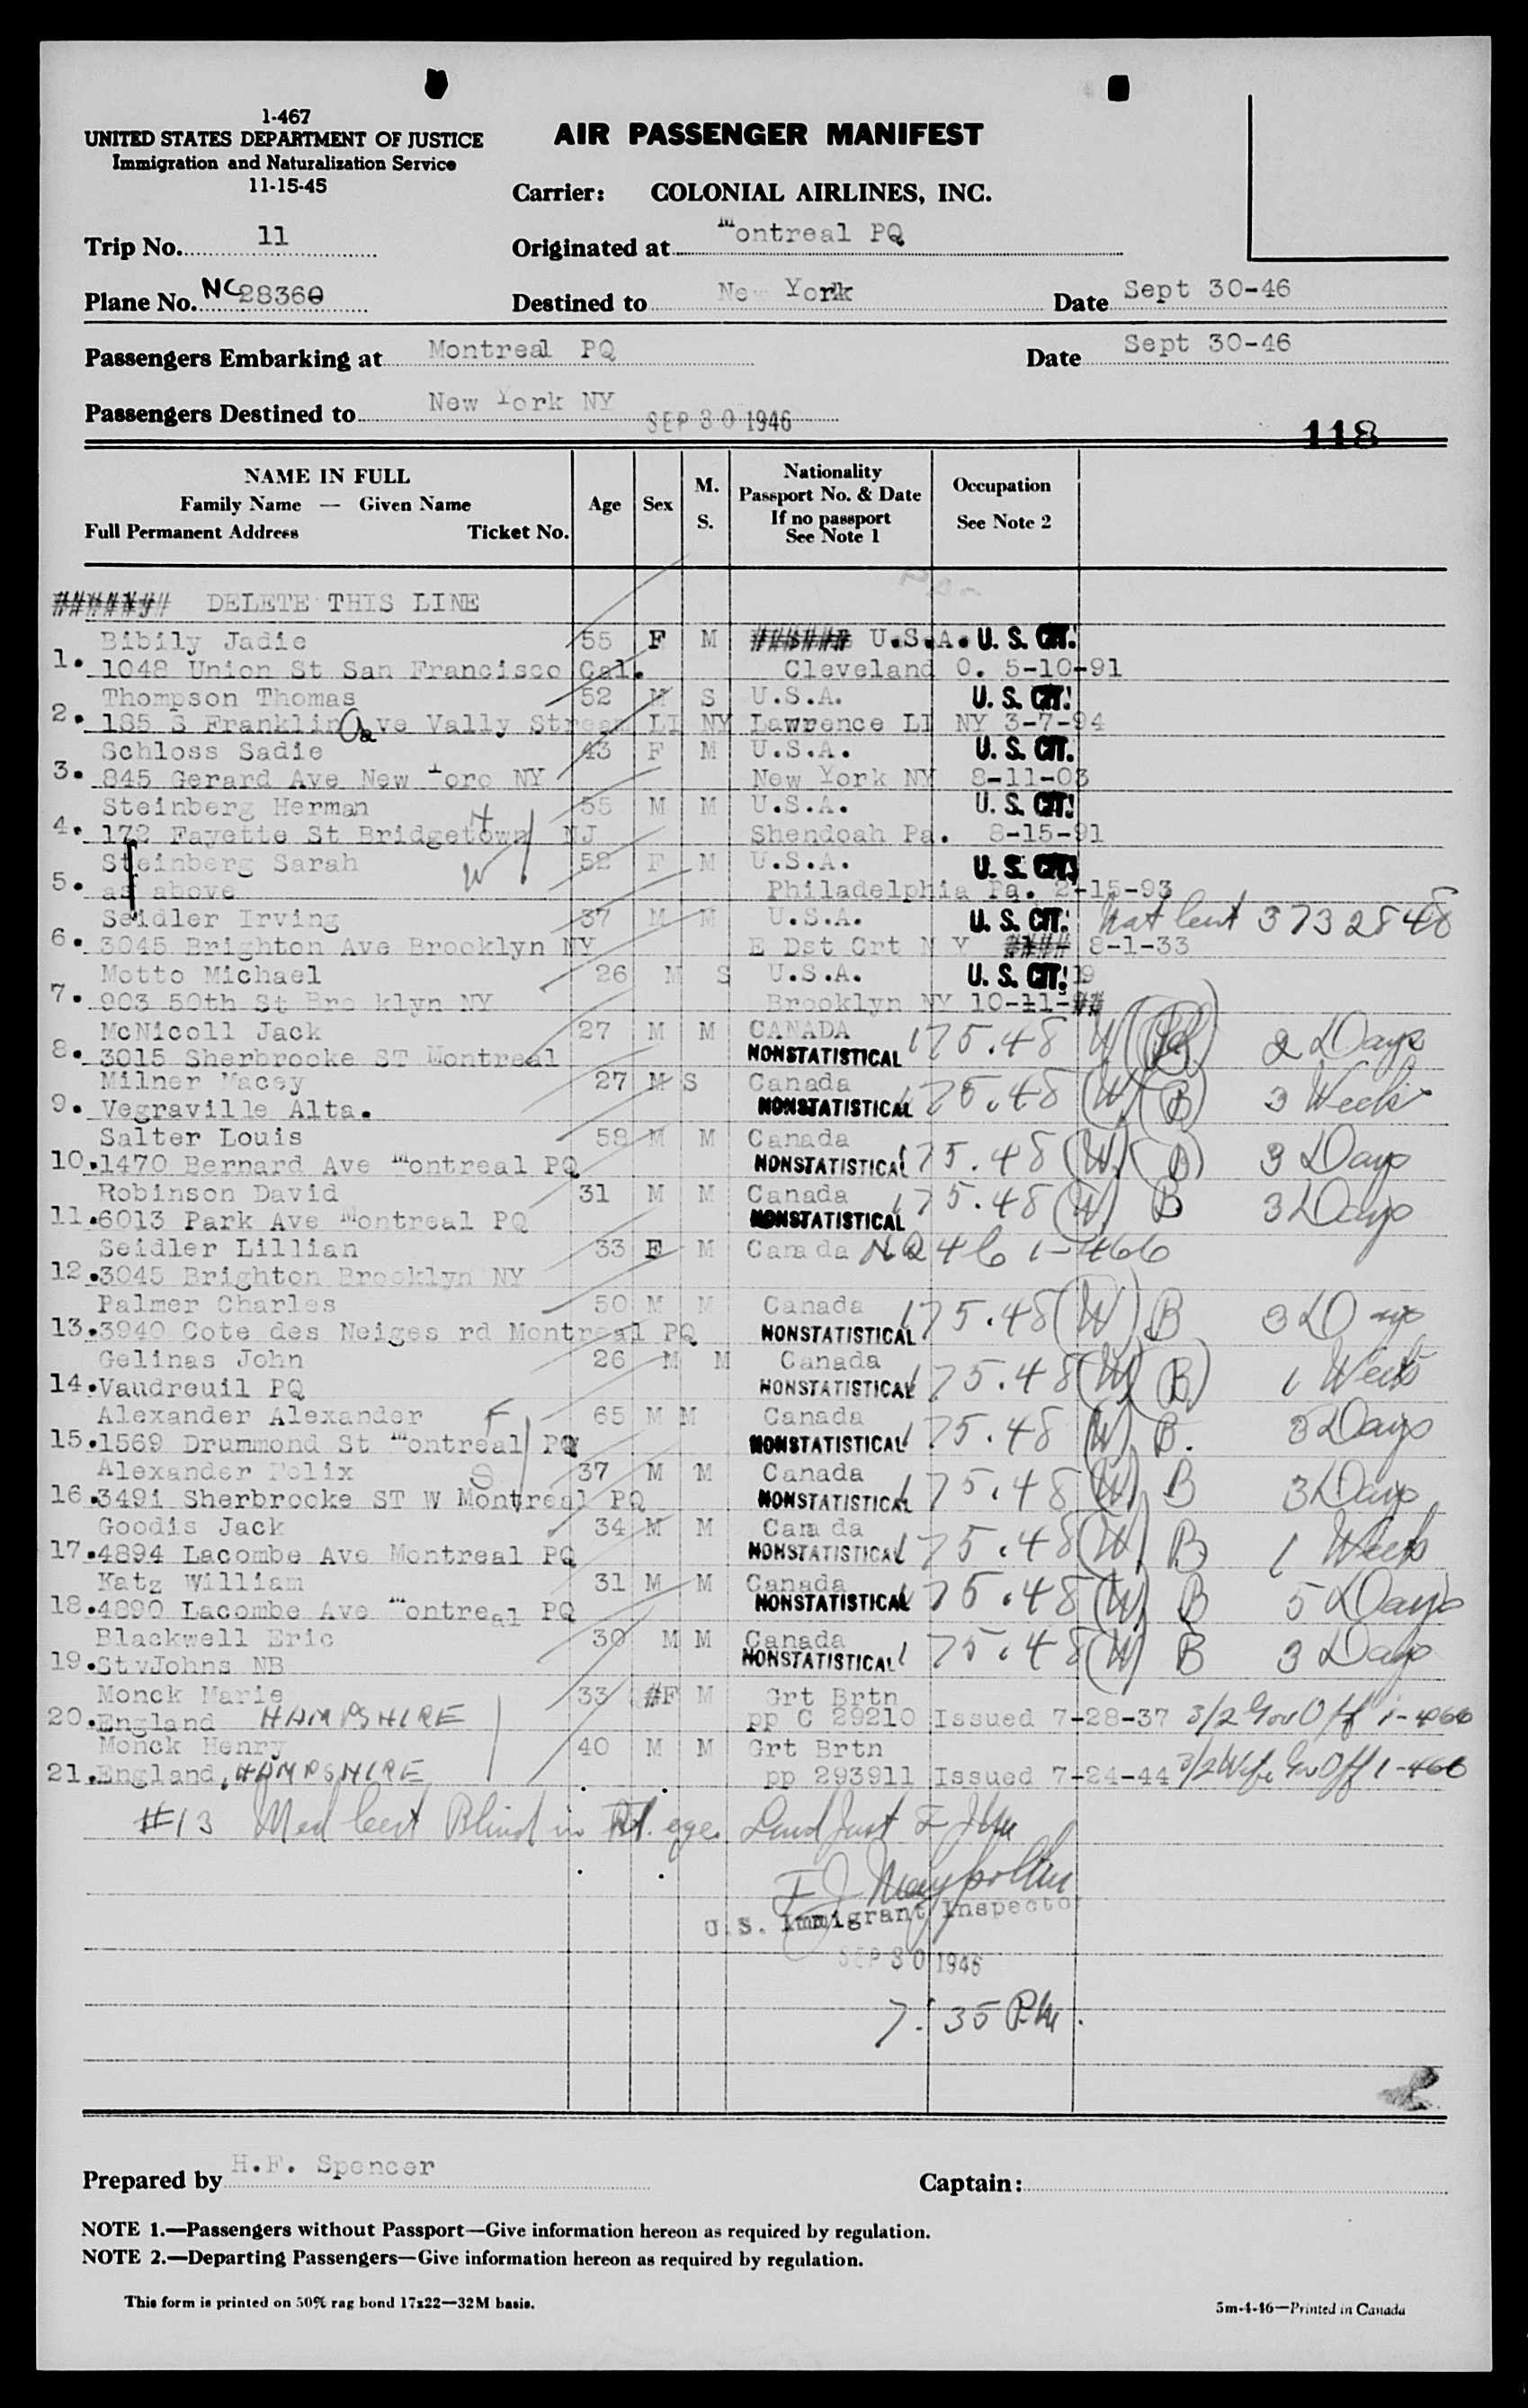 1-467
UNITED STATES DEPARTMENT OF JUSTICE
Immigration and Naturalization Service
11-15-45
AIR PASSENGER MANIFEST
Carrier: COLONIAL AIRLINES, INC.
Trip No. 11
Originated at Montreal PQ
Plane No. NC28360
Destined to New York
Date Sept 30-46
Passengers Embarking at Montreal PQ
Date Sept 30-46
Passengers Destined to New York NY
SEP 30 1946
118
NAME IN FULL
Family Name — Given Name
Full Permanent Address Ticket No.
Age
Sex
M. S.
Nationality
Passport No. & Date
If no passport
See Note 1
Occupation
See Note 2
####### DELETE THIS LINE
Bibily Jadie 55 F M ###### U.S.A. U. S. CIT.
1. 1048 Union St San Francisco Cal. Cleveland O. 5-10-91
Thompson Thomas 52 M S U.S.A. U. S. CIT.
2. 185 S Franklin Ave Vally Stream LI NY Lawrence LI NY 3-7-94
Schloss Sadie 43 F M U.S.A. U. S. CIT.
3. 845 Gerard Ave New Yorc NY New York NY 8-11-03
Steinberg Herman H 55 M M U.S.A. U. S. CIT.
4. 172 Fayette St Bridgetown NJ Shendoah Pa. 8-15-91
Steinberg Sarah W 52 F M U.S.A. U. S. CIT.
5. as above Philadelphia Pa. 2-15-93
Seidler Irving 37 M M U.S.A. U. S. CIT. Nat Cert 3732848
6. 3045 Brighton Ave Brooklyn NY E Dst Crt N Y #### 8-1-33
Motto Michael 26 M S U.S.A. U. S. CIT. 19
7. 903 50th St Bro klyn NY Brooklyn NY 10-11-##
McNicoll Jack 27 M M CANADA 175.48 W B 2 Days
8. 3015 Sherbrooke ST Montreal NONSTATISTICAL
Milner Macey 27 M S Canada 175.48 (W) (B) 3 Weeks
9. Vegraville Alta. NONSTATISTICAL
Salter Louis 58 M M Canada 175.48 (W) (B) 3 Days
10. 1470 Bernard Ave Montreal PQ NONSTATISTICAL
Robinson David 31 M M Canada 175.48 (W) B 3 Days
11. 6013 Park Ave Montreal PQ NONSTATISTICAL
Seidler Lillian 33 F M Canada NQ 46 1-466
12. 3045 Brighton Brooklyn NY
Palmer Charles 50 M M Canada 175.48 (W) B 3 Days
13. 3940 Cote des Neiges rd Montreal PQ NONSTATISTICAL
Gelinas John 26 M M Canada 175.48 (W) (B) 1 Week
14. Vaudreuil PQ NONSTATISTICAL
Alexander Alexander F 65 M M Canada 175.48 (W) B. 3 Days
15. 1569 Drummond St Montreal PQ NONSTATISTICAL
Alexander Felix S 37 M M Canada 175.48 (W) B 3 Days
16. 3491 Sherbrooke ST W Montreal PQ NONSTATISTICAL
Goodis Jack 34 M M Cana da 175.48 (W) B 1 Week
17. 4894 Lacombe Ave Montreal PQ NONSTATISTICAL
Katz William 31 M M Canada 175.48 (W) B 5 Days
18. 4890 Lacombe Ave Montreal PQ NONSTATISTICAL
Blackwell Eric 30 M M Canada 175.48 (W) B 3 Days
19. StvJohns NB NONSTATISTICAL
Monck Marie 33 #F M Grt Brtn
20. England HAMPSHIRE pp C 29210 Issued 7-28-37 3/2 Gov Off 1-466
Monck Henry 40 M M Grt Brtn
21. England, HAMPSHIRE pp 293911 Issued 7-24-44 3/2 Wife Gov Off 1-466
#13 Med Cert Blind in Rt. eye.
U.S. Immigrant Inspector
SEP 30 1946
7:35 PM.
Prepared by H.F. Spencer
Captain:
NOTE 1.—Passengers without Passport—Give information hereon as required by regulation.
NOTE 2.—Departing Passengers—Give information hereon as required by regulation.
This form is printed on 50% rag bond 17x22—32M basis.
5m-4-46—Printed in Canada